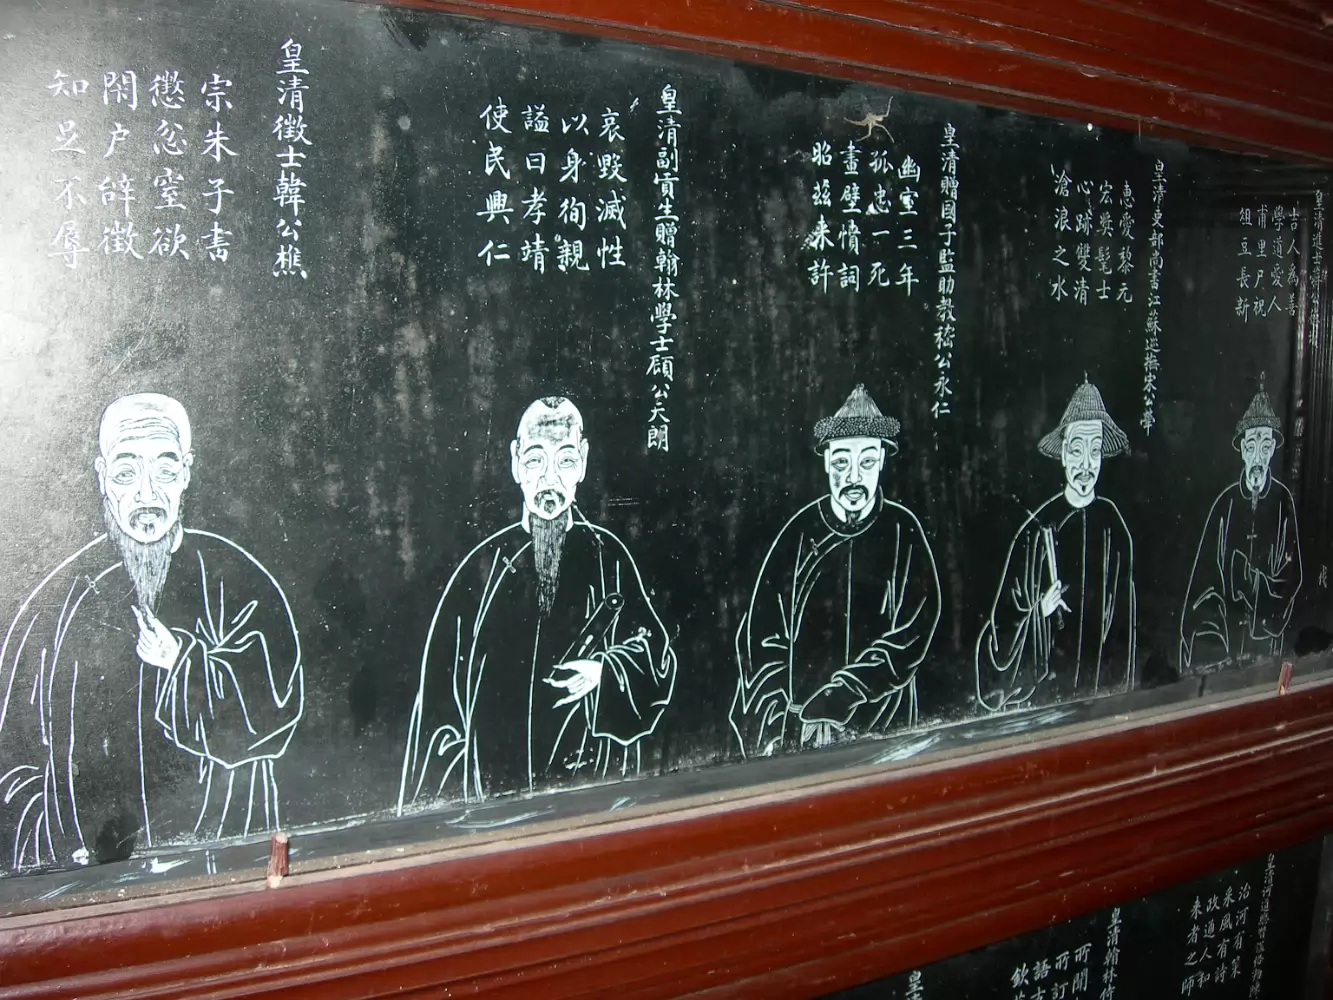 皇清吏部尚書江蘇巡撫宋公犖
惠愛黎元
宏奬髦士
心跡雙清
滄浪之水
古人為善
學道愛人
甫里尸祝
俎豆長新
皇清贈國子監助教嵇公永仁
幽室三年
孤忠一死
畫壁憤詞
昭茲来許
皇清副貢生贈翰林學士顧公天朗
哀毀滅性
以身徇親
謚曰孝靖
使民興仁
皇清徵士韓公樵
宗朱子書
懲忿窒欲
閉户辞徵
知足不辱
治河有策
采風有詩
政通人和
来者之師
皇清翰林侍
所聞
所訂
語
欽
皇清